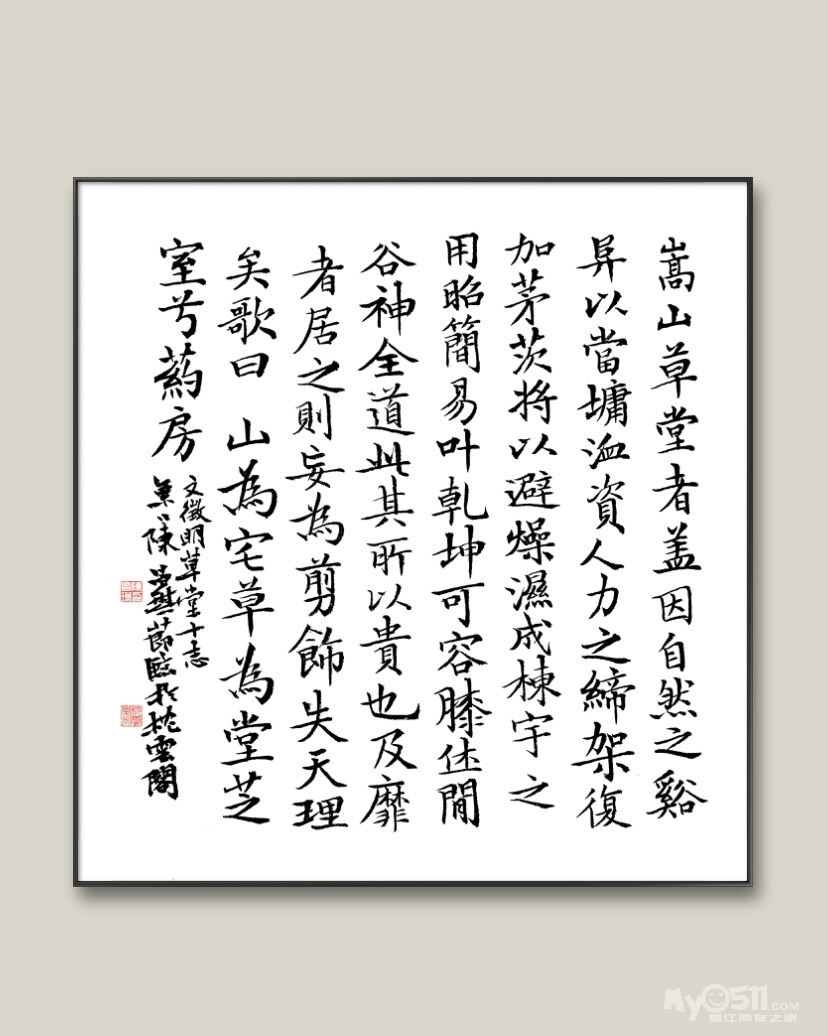 嵩山草堂者盖因自然之谿
阜以當墉洫資人力之締架復
加茅茨将以避燥濕成棟宇之
用昭簡易叶乾坤可容膝休閒
谷神全道此其所以貴也及靡
者居之則妄為剪飾失天理
矣歌曰 山為宅草為堂芝
室兮葯房
文徵明草堂十志
陳 節臨於枕雲閣
My0511.COM
镇江网友之家